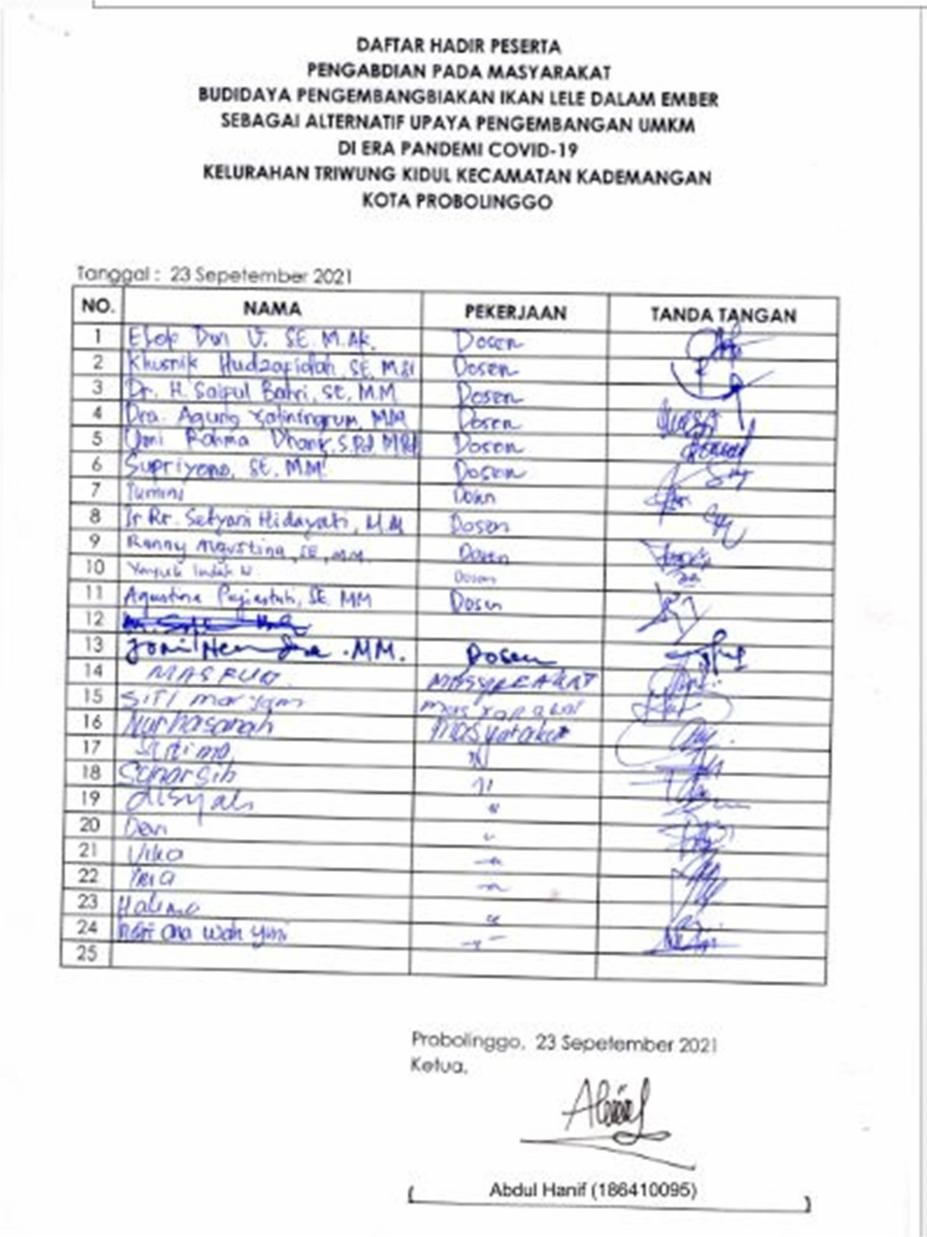 DAFTAR HADIR PESERTA
PENGABDIAN PADA MASYARAKAT
BUDIDAYA PENGEMBANGBIAKAN IKAN LELE DALAM EMBER
SEBAGAI ALTERNATIF UPAYA PENGEMBANGAN UMKM
DI ERA PANDEMI COVID-19
KELURAHAN TRIWUNG KIDUL KECAMATAN KADEMANGAN
KOTA PROBOLINGGO
Tanggal : 23 Sepetember 2021
NO. NAMA PEKERJAAN TANDA TANGAN
1 SE. M.Ak. Dosen
2 Khusnik Hudzafidah, SE, M.Si Dosen
3 Dr. H. Saipul Bahri, SE, M.M Dosen
4 Dra. Agung Yatiningrum, MM Dosen
5 Umi Rahma Dhany, S.Pd M.Pd Dosen
6 Supriyono, SE, MM Dosen
7 Tumini Dosen
8 Ir Rr. Setyani Hidayati, M.M Dosen
9 Ranny Agustina, SE, MM. Dosen
10 Indah Dosen
11 Agustina Pujiastuti, SE. MM Dosen
12
13 .MM. Dosen
14 MASYARAKAT
15 SiTi maryam masyarakat
16 Nurhasanah masyarakat
17 "
18 Sunarsih "
19 Aisyah "
20 "
21 Vika "
22 "
23 Halima "
24 wahyuni "
25
Probolinggo, 23 Sepetember 2021
Ketua,
Abdul Hanif (186410095)